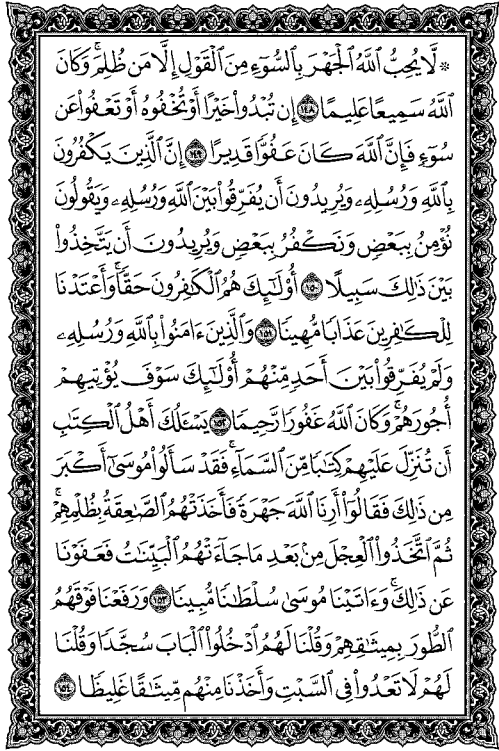 ۞ لَّا يُحِبُّ ٱللَّهُ ٱلْجَهْرَ بِٱلسُّوٓءِ مِنَ ٱلْقَوْلِ إِلَّا مَن ظُلِمَۚ وَكَانَ
ٱللَّهُ سَمِيعًا عَلِيمًا ١٤٨ إِن تُبْدُوا۟ خَيْرًا أَوْ تُخْفُوهُ أَوْ تَعْفُوا۟ عَن
سُوٓءٍ فَإِنَّ ٱللَّهَ كَانَ عَفُوًّا قَدِيرًا ١٤٩ إِنَّ ٱلَّذِينَ يَكْفُرُونَ
بِٱللَّهِ وَرُسُلِهِۦ وَيُرِيدُونَ أَن يُفَرِّقُوا۟ بَيْنَ ٱللَّهِ وَرُسُلِهِۦ وَيَقُولُونَ
نُؤْمِنُ بِبَعْضٍ وَنَكْفُرُ بِبَعْضٍ وَيُرِيدُونَ أَن يَتَّخِذُوا۟
بَيْنَ ذَٰلِكَ سَبِيلًا ١٥٠ أُو۟لَـٰٓئِكَ هُمُ ٱلْكَـٰفِرُونَ حَقًّاۚ وَأَعْتَدْنَا
لِلْكَـٰفِرِينَ عَذَابًا مُّهِينًا ١٥١ وَٱلَّذِينَ ءَامَنُوا۟ بِٱللَّهِ وَرُسُلِهِۦ
وَلَمْ يُفَرِّقُوا۟ بَيْنَ أَحَدٍ مِّنْهُمْ أُو۟لَـٰٓئِكَ سَوْفَ يُؤْتِيهِمْ
أُجُورَهُمْۗ وَكَانَ ٱللَّهُ غَفُورًا رَّحِيمًا ١٥٢ يَسْـَٔلُكَ أَهْلُ ٱلْكِتَـٰبِ
أَن تُنَزِّلَ عَلَيْهِمْ كِتَـٰبًا مِّنَ ٱلسَّمَآءِۚ فَقَدْ سَأَلُوا۟ مُوسَىٰٓ أَكْبَرَ
مِن ذَٰلِكَ فَقَالُوٓا۟ أَرِنَا ٱللَّهَ جَهْرَةً فَأَخَذَتْهُمُ ٱلصَّـٰعِقَةُ بِظُلْمِهِمْۚ
ثُمَّ ٱتَّخَذُوا۟ ٱلْعِجْلَ مِنۢ بَعْدِ مَا جَآءَتْهُمُ ٱلْبَيِّنَـٰتُ فَعَفَوْنَا
عَن ذَٰلِكَۚ وَءَاتَيْنَا مُوسَىٰ سُلْطَـٰنًا مُّبِينًا ١٥٣ وَرَفَعْنَا فَوْقَهُمُ
ٱلطُّورَ بِمِيثَـٰقِهِمْ وَقُلْنَا لَهُمُ ٱدْخُلُوا۟ ٱلْبَابَ سُجَّدًا وَقُلْنَا
لَهُمْ لَا تَعْدُوا۟ فِى ٱلسَّبْتِ وَأَخَذْنَا مِنْهُم مِّيثَـٰقًا غَلِيظًا ١٥٤